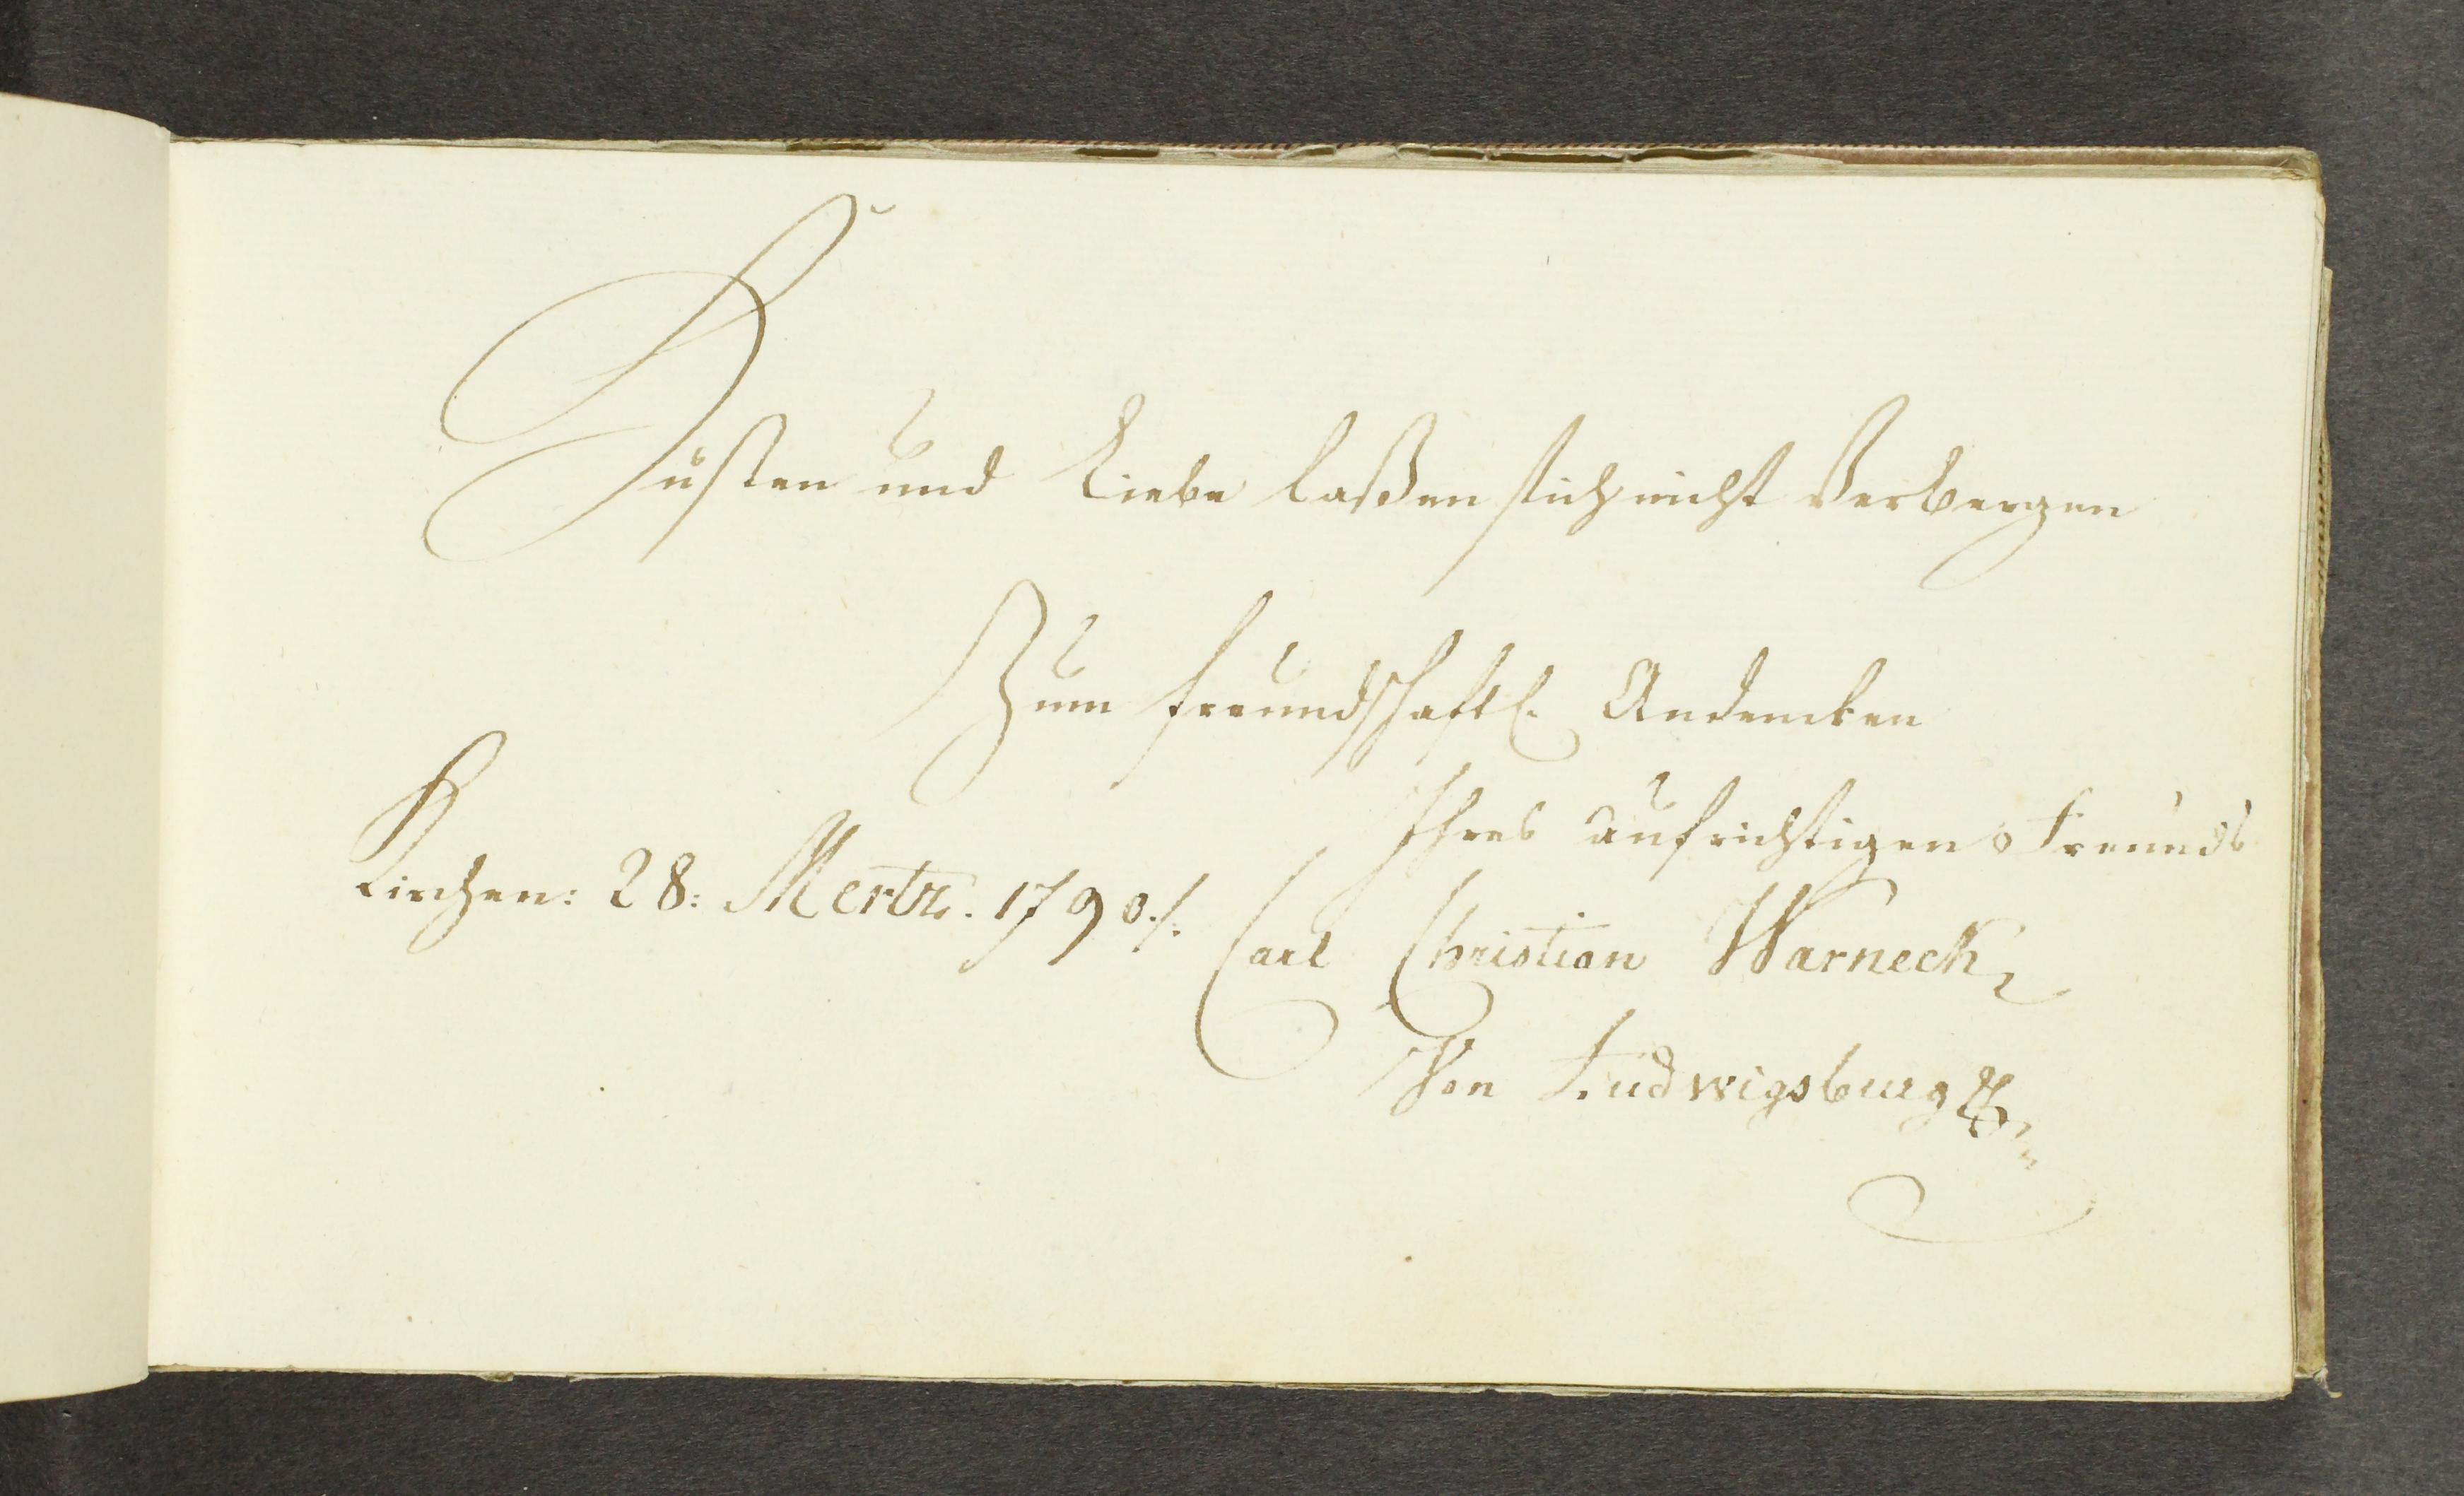 Husten und Liebe laßen sich nicht Verbergen
Zum freundschaftl. Andencken
Ihres aufrichtigen Freunds
Kirchen: 28: Mertz. 1790./.
Carl Christian Warneck
Von Ludwigsburg